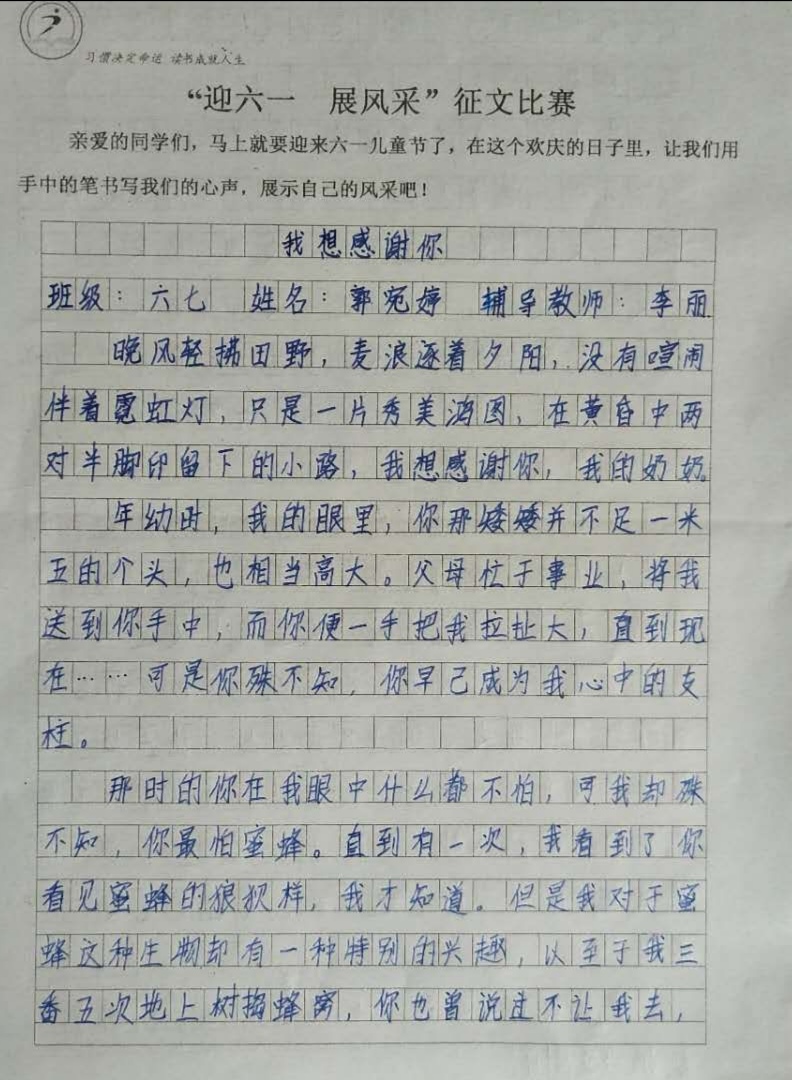 习惯决定命运 读书成就人生
“迎六一 展风采”征文比赛
亲爱的同学们，马上就要迎来六一儿童节了，在这个欢庆的日子里，让我们用
手中的笔书写我们的心声，展示自己的风采吧！
我想感谢你
班级：六七 姓名：郭宛婷 辅导教师：李丽
晚风轻拂田野，麦浪逐着夕阳，没有喧闹
伴着霓虹灯，只是一片秀美鸿图，在黄昏中两
对半脚印留下的小路，我想感谢你，我的奶奶。
年幼时，我的眼里，你那矮矮并不足一米
五的个头，也相当高大。父母忙于事业，将我
送到你手中，而你便一手把我拉扯大，直到现
在……可是你殊不知，你早已成为我心中的支
柱。
那时的你在我眼中什么都不怕，可我却殊
不知，你最怕蜜蜂。直到有一次，我看到了你
看见蜜蜂的狼狈样，我才知道。但是我对于蜜
蜂这种生物却有一种特别的兴趣，以至于我三
番五次地上树掏蜂窝，你也曾说过不让我去，